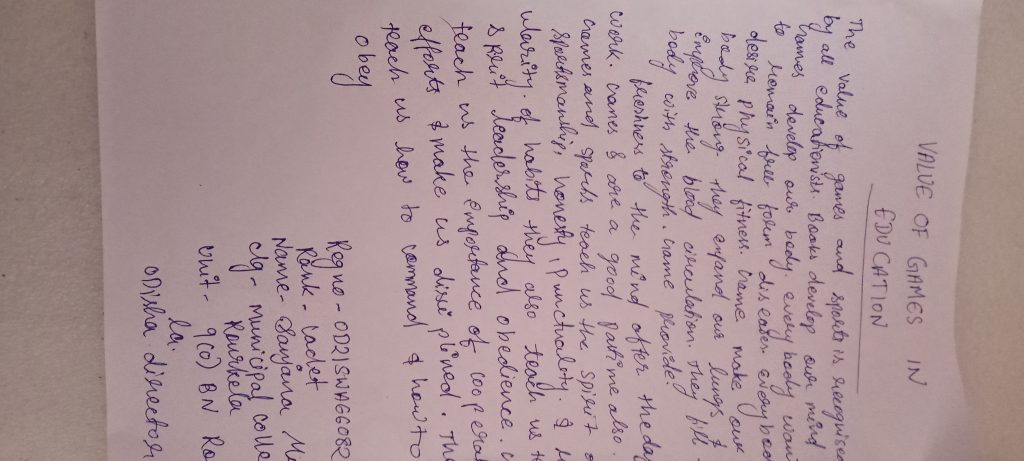 VALUE OF GAMES IN
EDUCATION
The value of games and sports is recognised
by all educationists. Books develop our mind
Games develop our body. every body wan
to remain free form diseases. everybod
desire physical fitness. Game make our
body strong they expand our lungs &
improve the blood circulation. They fill
body with strength. Game provide.
freshnes to the mind after the day
work. Games & are a good pattime also.
Games and sports teach us the spirit o
sportsmanship, honesty, Punctuality. &
ularity of habits they also teach us t
spirit leadership and obedience.
teach us the importance of coopera
efforts & make us disciplined. The
teach us how to command & how to
obey
Regno - OD21SWA66082
Rank - Cadet
Name - Sanjana M
clg - Municipal colle
Rourkela
Unit - 9(O) BN Ro
la.
Odisha director